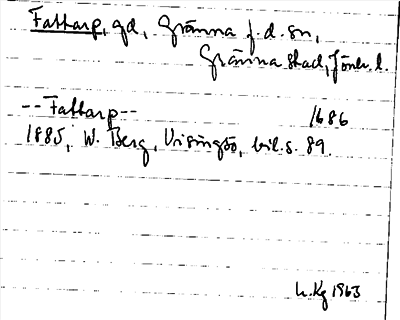 Fattarp, gd, Gränna f.d. sn,
Gränna stad, Jönk. l.
--Fattarp-- 1686
1885, W. Berg, Visingsö, bil. s. 89.
h. Kg 1963